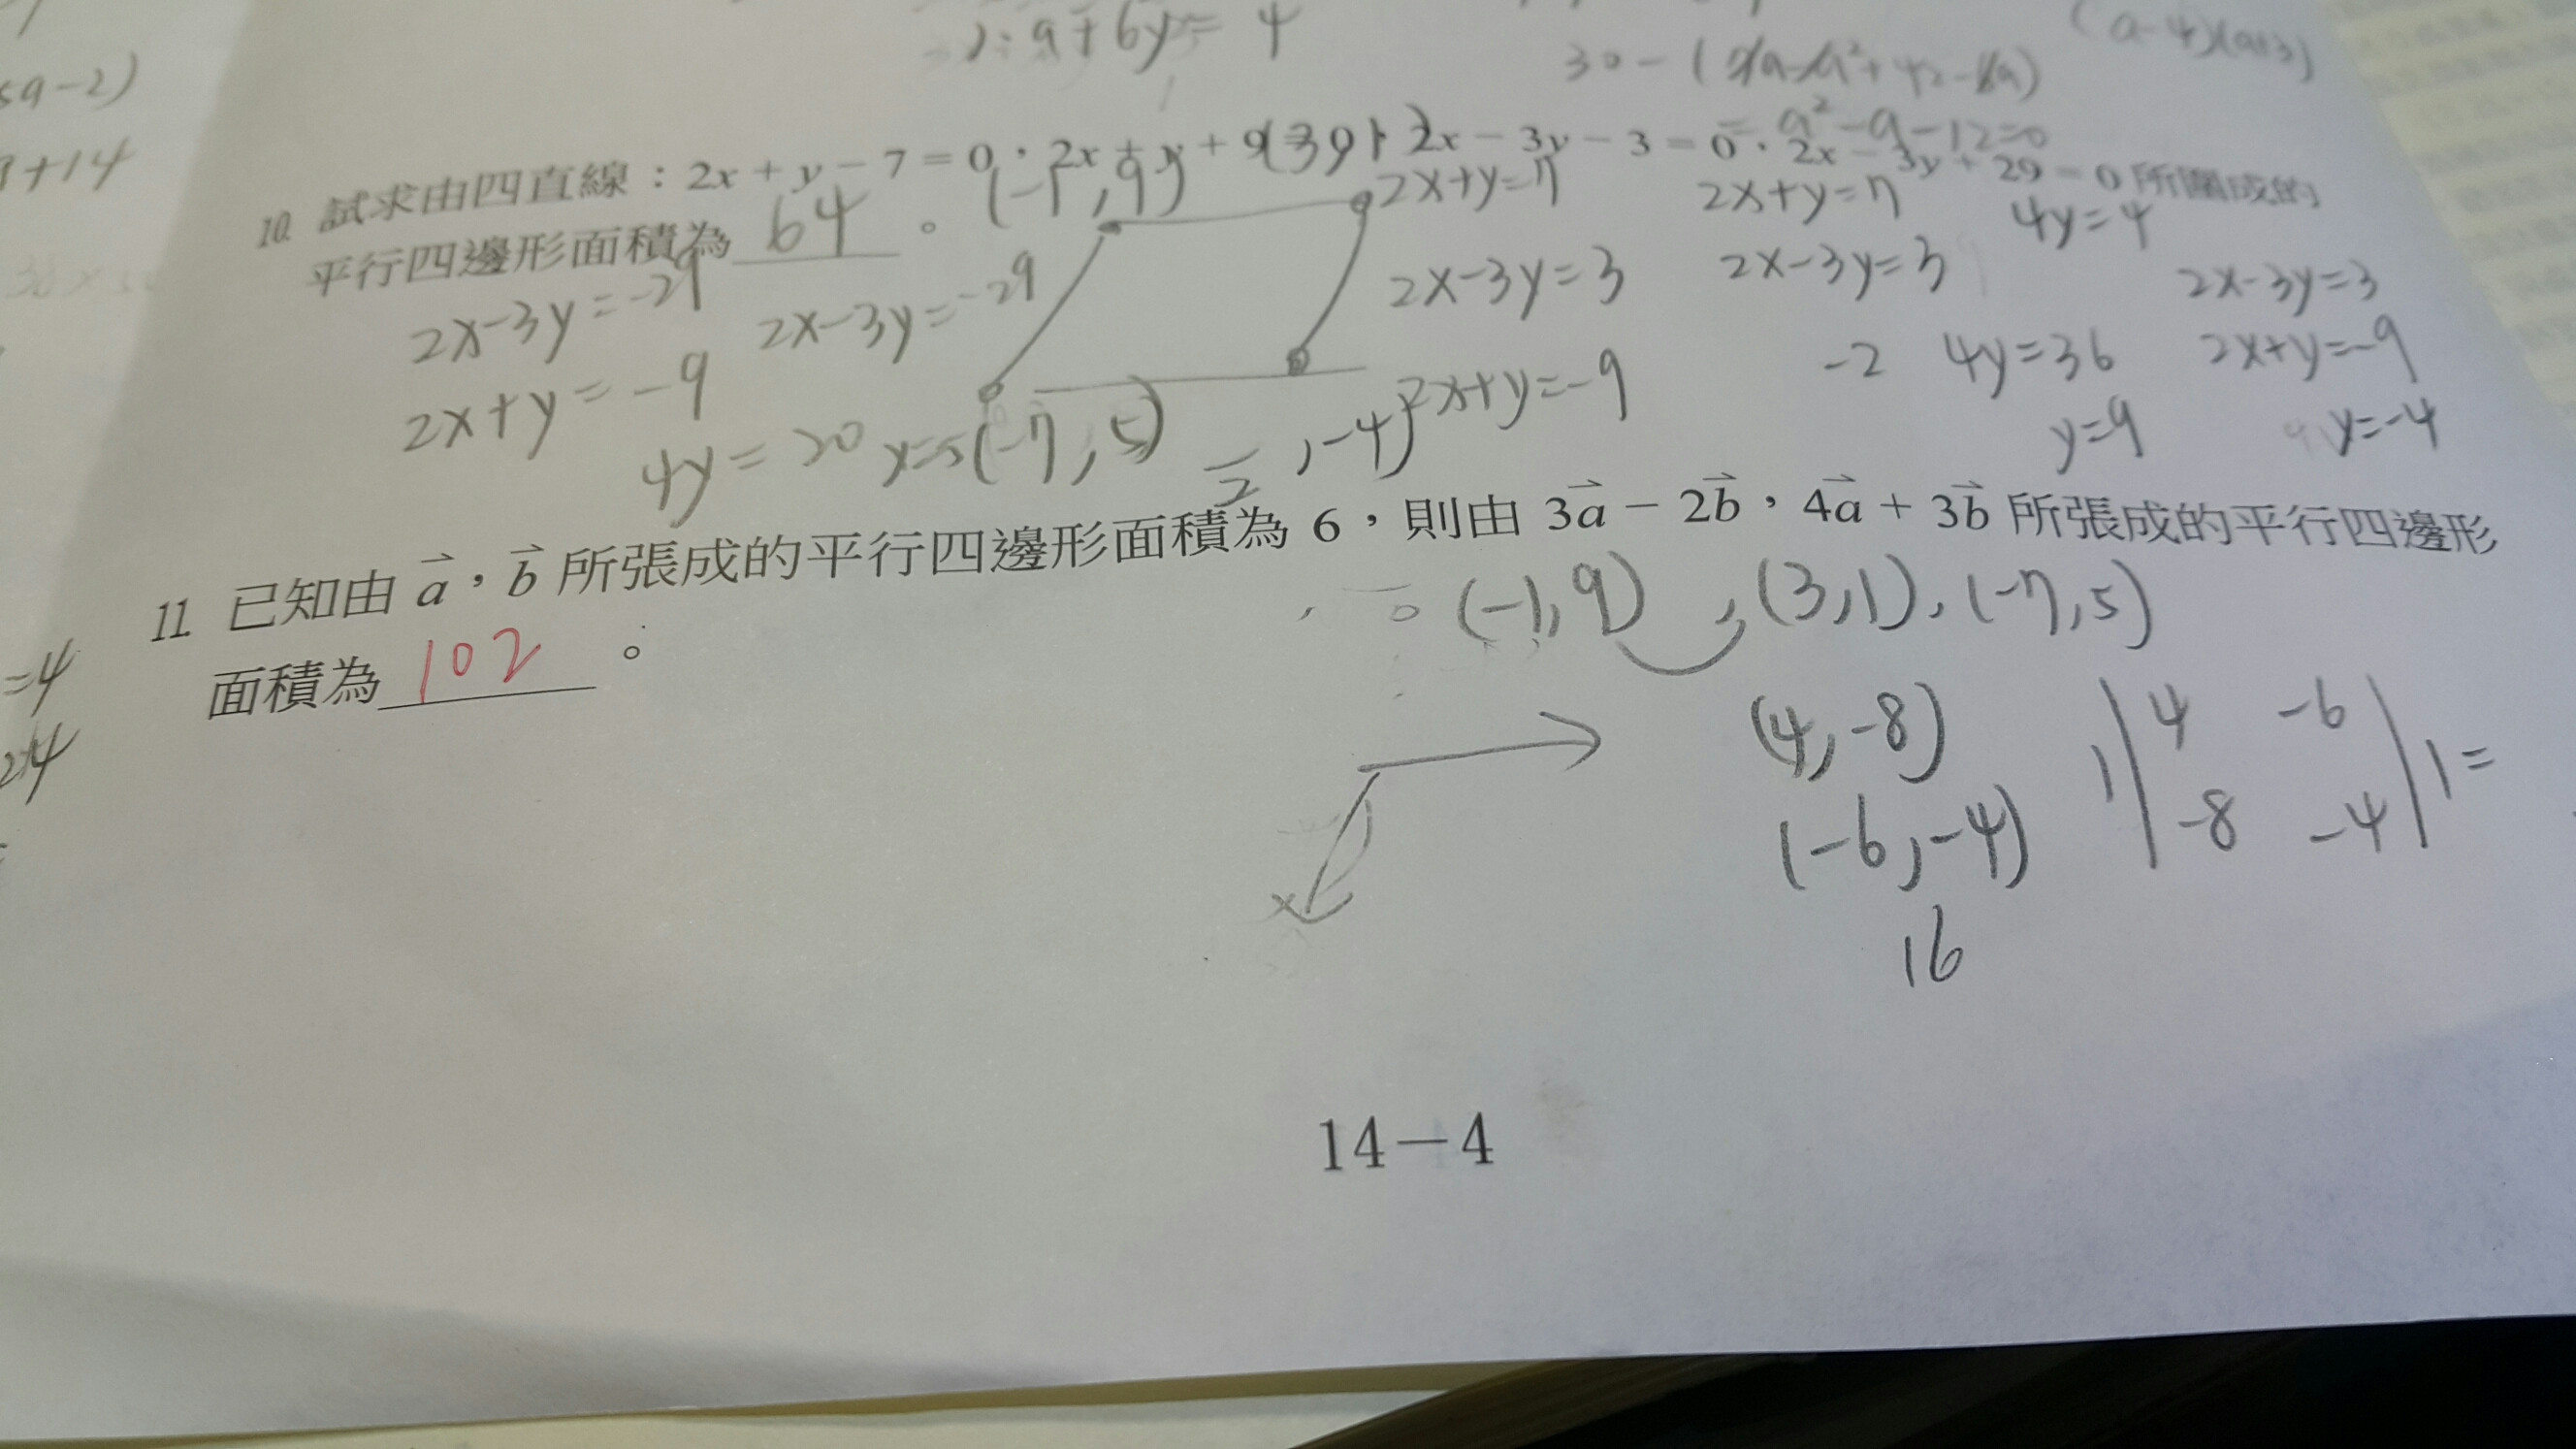 ): a+6y=4
(a-4)(a+3)
5a-2)
+14
a²-a-12=0
10. 試求由四直線：2x+y-7=0，2x+y+9，2x-3y-3=0，2x-3y+29=0所圍成的
平行四邊形面積為 64 。
(-1,9)
(3,1)
2x+y=7
2x+y=7
4y=4
2x-3y=-29
2x-3y=-29
2x-3y=3
2x-3y=3
2x-3y=3
2x+y=-9
-2
4y=36
2x+y=-9
4y=20
y=5
(-7,5)
,-4)
2x+y=-9
y=9
y=-4
11. 已知由 a，b 所張成的平行四邊形面積為 6，則由 3a-2b，4a+3b 所張成的平行四邊形
面積為 102 。
(-1,9),(3,1),(-7,5)
=4
(4,-8)
|4 -6|
(-6,-4)
|-8 -4| =
16
14-4